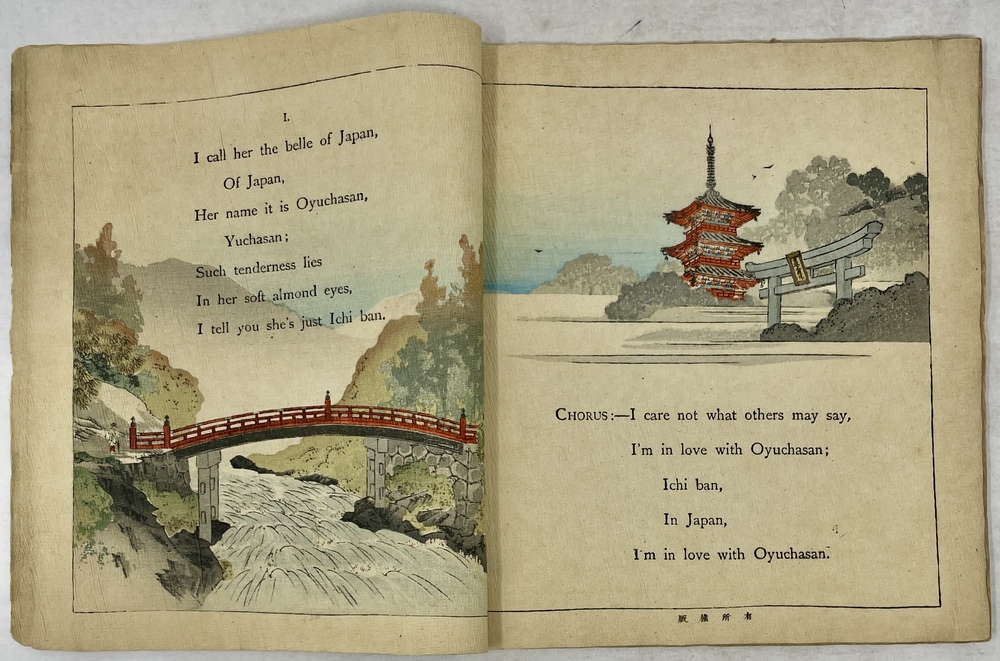 I.
I call her the belle of Japan,
Of Japan,
Her name it is Oyuchasan,
Yuchasan;
Such tenderness lies
In her soft almond eyes,
I tell you she's just Ichi ban.
CHORUS:—I care not what others may say,
I'm in love with Oyuchasan;
Ichi ban,
In Japan,
I'm in love with Oyuchasan.
版權所有